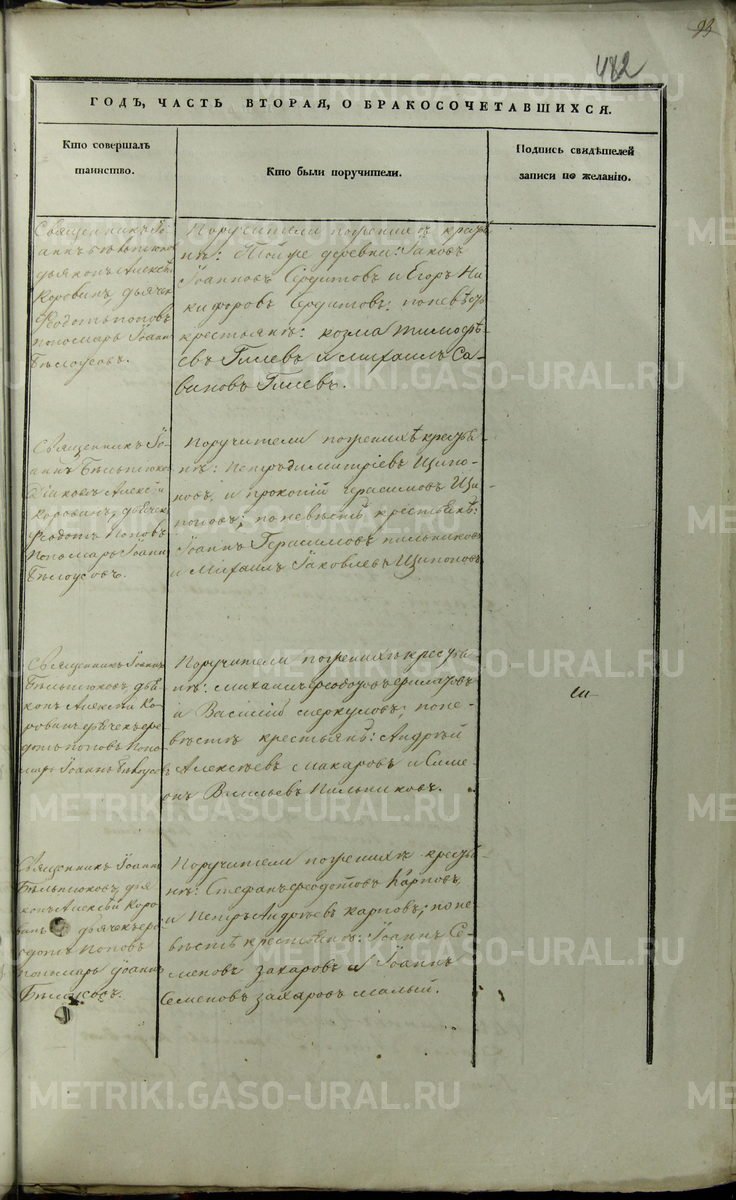 93
482
ГОДЪ, ЧАСТЬ ВТОРАЯ, О БРАКОСОЧЕТАВШИХСЯ.
Кто совершалъ
таинство.
Кто были поручители.
Подпись свидѣтелей
записи по желанію.
Священникъ Іо-
аннъ Бѣльтюковъ
дьяконъ Алексѣй
Коровинъ, дьячекъ
Ѳеодотъ Поповъ
пономарь Іоаннъ
Бѣлоусовъ.
Поручители по женихѣ крестья-
не: Тойже деревни: Іаковъ
Іоанновъ Сердитовъ и Егоръ Ни-
кифоровъ Сердитовъ; по невѣстѣ
крестьяне: козма тимофѣ-
евъ Гилевъ и михаилъ Са-
виновъ Гилевъ.
Священникъ Іо-
аннъ Бѣльтюковъ
Діаконъ Алексій
коровинъ, дьячекъ
Ѳеодотъ Поповъ
Пономарь Іоаннъ
Бѣлоусовъ.
Поручители по женихѣ крестья-
не: Петръ димитріевъ Щипа-
новъ, и прокопій герасимовъ Щи-
повъ; по невѣстѣ крестьяне:
Іоаннъ Герасимовъ пильниковъ
и Михаилъ Іаковлевъ Щипановъ
Священникъ Іоаннъ
Бѣльтюковъ, дья
конъ Алексій Ко-
ровинъ дьячекъ Ѳео
дотъ поповъ Поно
марь Іоаннъ Бѣлоусовъ
Поручители по женихѣ крестья
не: михаилъ феодоровъ
и Василій меркуловъ; по не-
вѣстѣ крестьяне: Андрей
Алексѣевъ Макаровъ и Симе
онъ Васильевъ Пильниковъ.
Священникъ Іоаннъ
Бѣльтюковъ, дья
конъ Алексій Коро
винъ дьячекъ Ѳео
дотъ Поповъ
пономарь Іоаннъ
Бѣлоусовъ.
Поручители по женихѣ крестья-
не: Стефанъ феодотовъ Карповъ
и Петръ Андреевъ карповъ; по не
вѣстѣ крестьяне: Іоаннъ Се-
меновъ захаровъ и Іоаннъ
Семеновъ захаровъ малый.
METRIKI.GASO-URAL.RU